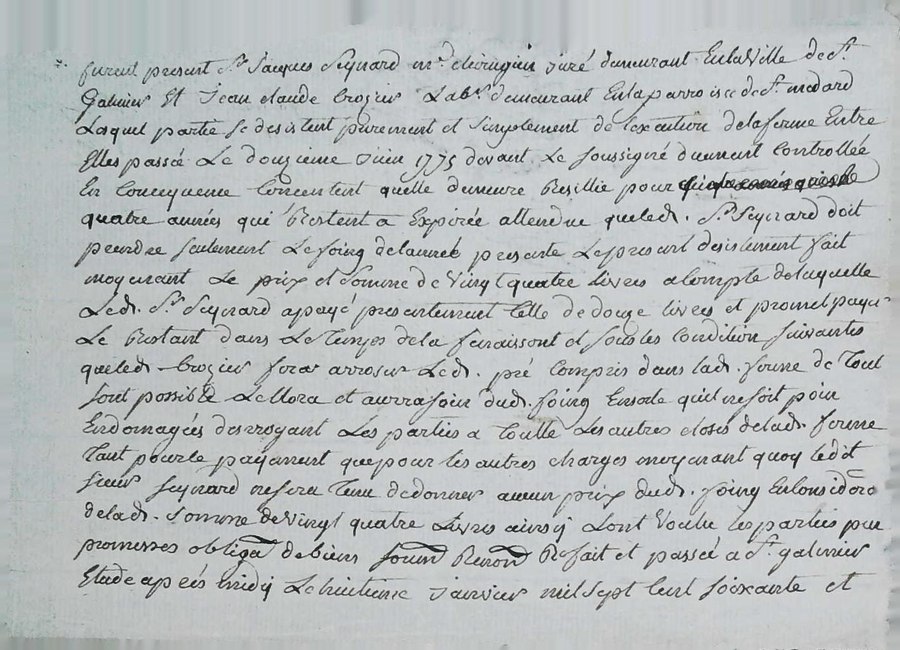 furent present Sr Jacques Seynard mr chirugien juré demeurant En la Ville de St
Galmier Et Jean claude Crozier Labr demeurant En la parroisse de St medard
Laquel partie se desistent purement et simplement de lexecution de la ferme Entre
Elles passé Le douzieme Juin 1775 devant Le soussigné duement Controllée
En Consequence Consentent quelle demeure Resillie pour
quatre années qui Restent a Expirée attendue queled. Sr Seynard doit
prendre seulement Le foing de lannee presente Le present desistement fait
moyenant Le prix et somme de Vingt quatre livres a Compte de laquelle
Led. Sr Seynard a payé presentement Celle de douze livres et promet payer
Le Restant dans Le Temps de la fenaissont et sous les Condition suivantes
queled Crozier fera arroser Led. pré Compris dans lad. ferme de Tout
sont possible Le Mora et aurra soin dud. foing Ensorte quil ne soit point
Endomagées desrogeant Les parties a Toutte Les autres closes delad. ferme
Tant pour le payement que pour les autres charges moyenant quoy ledit
sieur Seynard ne sera Tenu de donner aucun prix dud. foing En Considon
delad. Somme de Vingt quatre Livres ainsy Lont Voulu les parties par
promesses obligaon de biens soumon Renon & fait et passé a St galmier
Etude après midy Le huitieme Janvier mil sept Cent soixante et